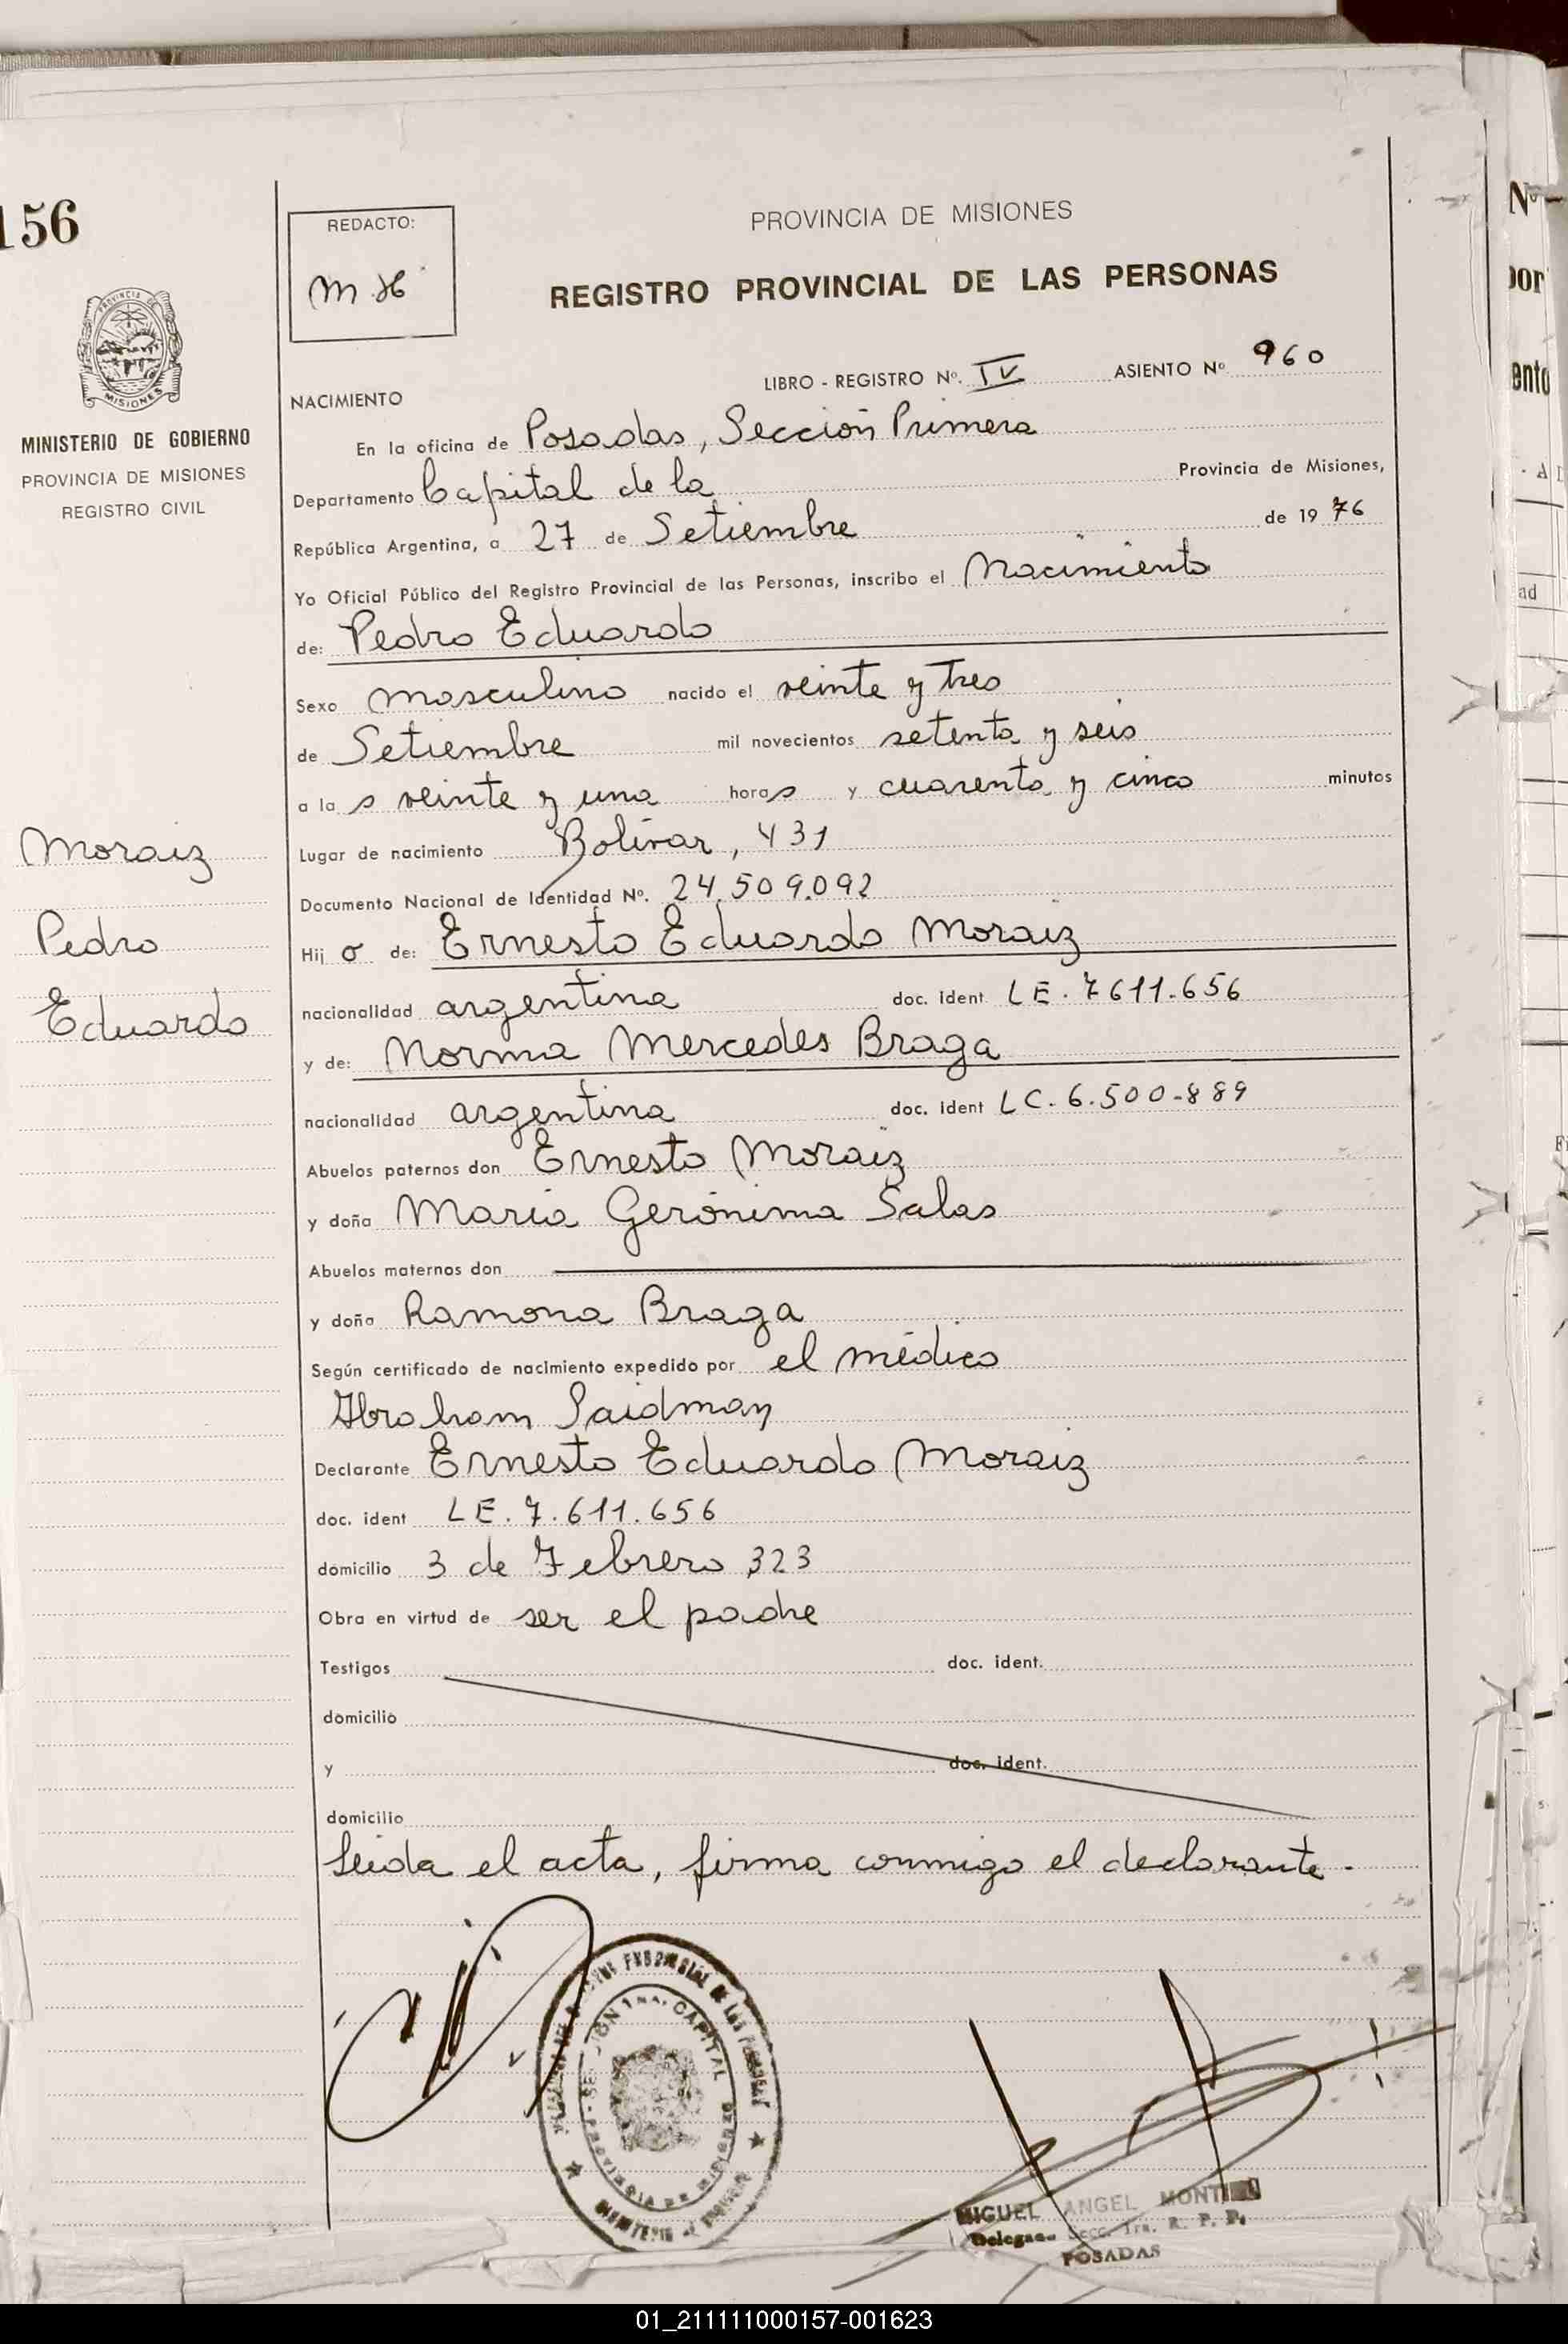 156
MINISTERIO DE GOBIERNO
PROVINCIA DE MISIONES
REGISTRO CIVIL
Moraiz
Pedro
Eduardo
REDACTO:
PROVINCIA DE MISIONES
REGISTRO PROVINCIAL DE LAS PERSONAS
LIBRO - REGISTRO Nº. IV ASIENTO Nº 960
NACIMIENTO
En la oficina de Posadas, Sección Primera
Departamento Capital de la Provincia de Misiones,
República Argentina, a 27 de Setiembre de 1976
Yo Oficial Público del Registro Provincial de las Personas, inscribo el Nacimiento
de: Pedro Eduardo
Sexo masculino nacido el veinte y tres
de Setiembre mil novecientos setenta y seis
a las veinte y una horas y cuarenta y cinco minutos
Lugar de nacimiento Bolívar, 431
Documento Nacional de Identidad Nº. 24.509.092
Hijo de: Ernesto Eduardo Moraiz
nacionalidad argentina doc. ident LE. 7611.656
y de: Norma Mercedes Braga
nacionalidad argentina doc. ident LC. 6.500.889
Abuelos paternos don Ernesto Moraiz
y doña María Gerónima Salas
Abuelos maternos don
y doña Ramona Braga
Según certificado de nacimiento expedido por el médico
Abraham Saidman
Declarante Ernesto Eduardo Moraiz
doc. ident LE. 7.611.656
domicilio 3 de Febrero 323
Obra en virtud de ser el padre
Testigos doc. ident.
domicilio
y doc. ident.
domicilio
Leída el acta, firma conmigo el declarante.
MIGUEL ANGEL
Secc. 1ra. R. P. P.
POSADAS
01_211111000157-001623